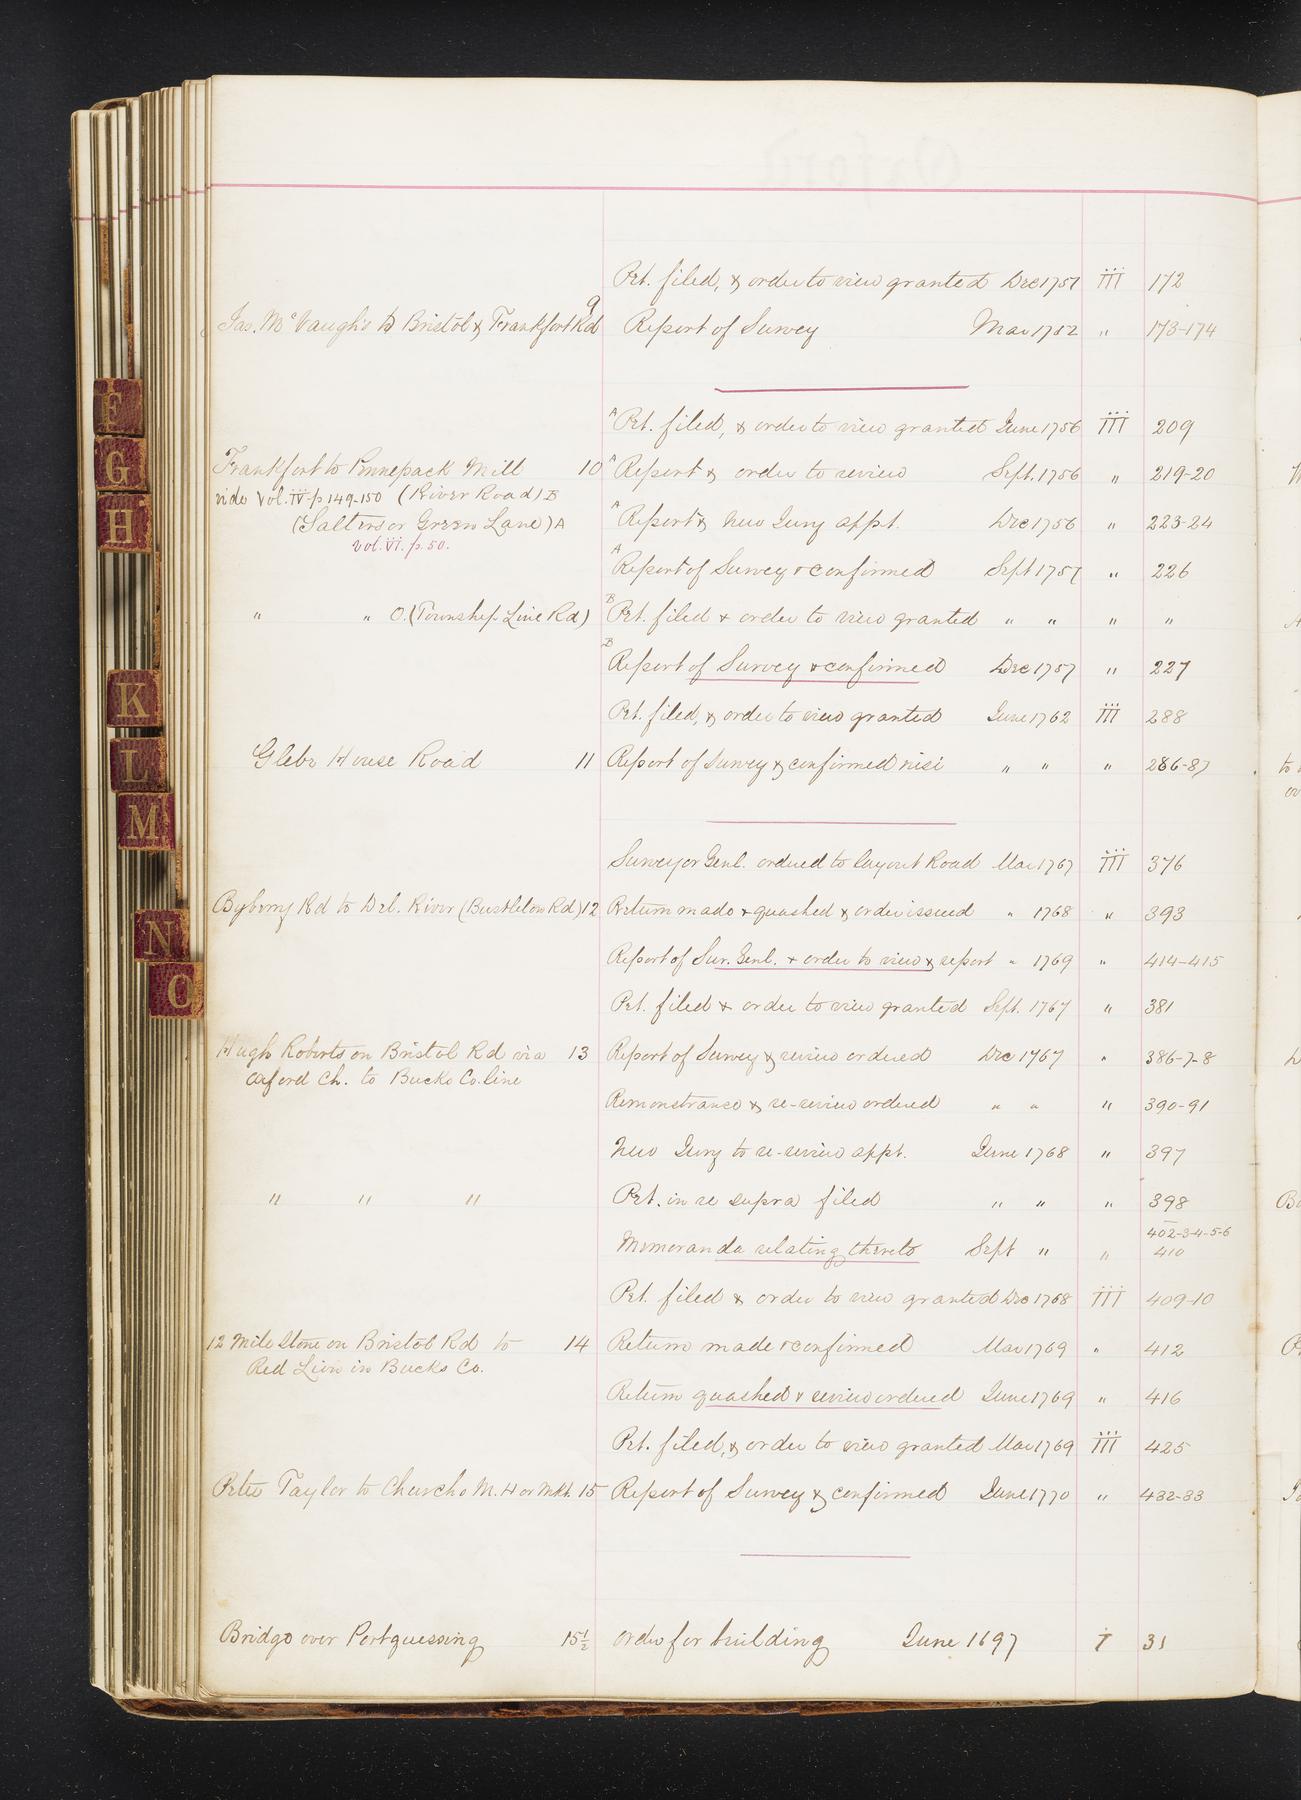 Pet. filed, & order to view granted Dec 1751 III 172
9
Jas. McVaugh's to Bristol & Frankfort Rd Report of Survey Mar 1752 " 173-174
A Pet. filed, & order to view granted June 1756 III 209
Frankfort to Pennepack Mill 10 A Report & order to review Sept. 1756 " 219-20
vide Vol. IV p 149-150 (River Road) B
(Salters or Green Lane) A A Report & New Jury appt. Dec 1756 " 223-24
Vol. VI. p. 50.
A Report of Survey & confirmed Sept 1757 " 226
" " O. (Township Line Rd) B Pet. filed & order to view granted " " " "
B Report of Survey & confirmed Dec 1757 " 227
Pet. filed, & order to view granted June 1762 III 288
Glebe House Road 11 Report of Survey & confirmed nisi " " " 286-87
Surveyor Genl. ordered to layout Road Mar 1767 III 376
Byberry Rd to Del. River (Bustleton Rd) 12 Return made & quashed & order issued " 1768 " 393
Report of Sur. Genl. & order to view & report " 1769 " 414-415
Pet. filed & order to view granted Sept. 1767 " 381
Hugh Roberts on Bristol Rd via 13 Report of Survey & review ordered Dec 1767 " 386-7-8
Oxford Ch. to Bucks Co. line
Remonstrance & re-review ordered " " " 390-91
New Jury to re-review appt. June 1768 " 397
" " " Pet. in re supra filed " " " 398
Memoranda relating thereto Sept " " 402-3-4-5-6
410
Pet. filed & order to view granted Dec 1768 III 409-10
12 Mile Stone on Bristol Rd to 14 Return made & confirmed Mar 1769 " 412
Red Lion in Bucks Co.
Return quashed & review ordered June 1769 " 416
Pet. filed, & order to view granted Mar 1769 III 425
Peter Taylor to Church M. H or Mkt. 15 Report of Survey & confirmed June 1770 " 432-33
Bridge over Portquessing 15½ order for building June 1697 I 31
F
G
H
K
L
M
N
O